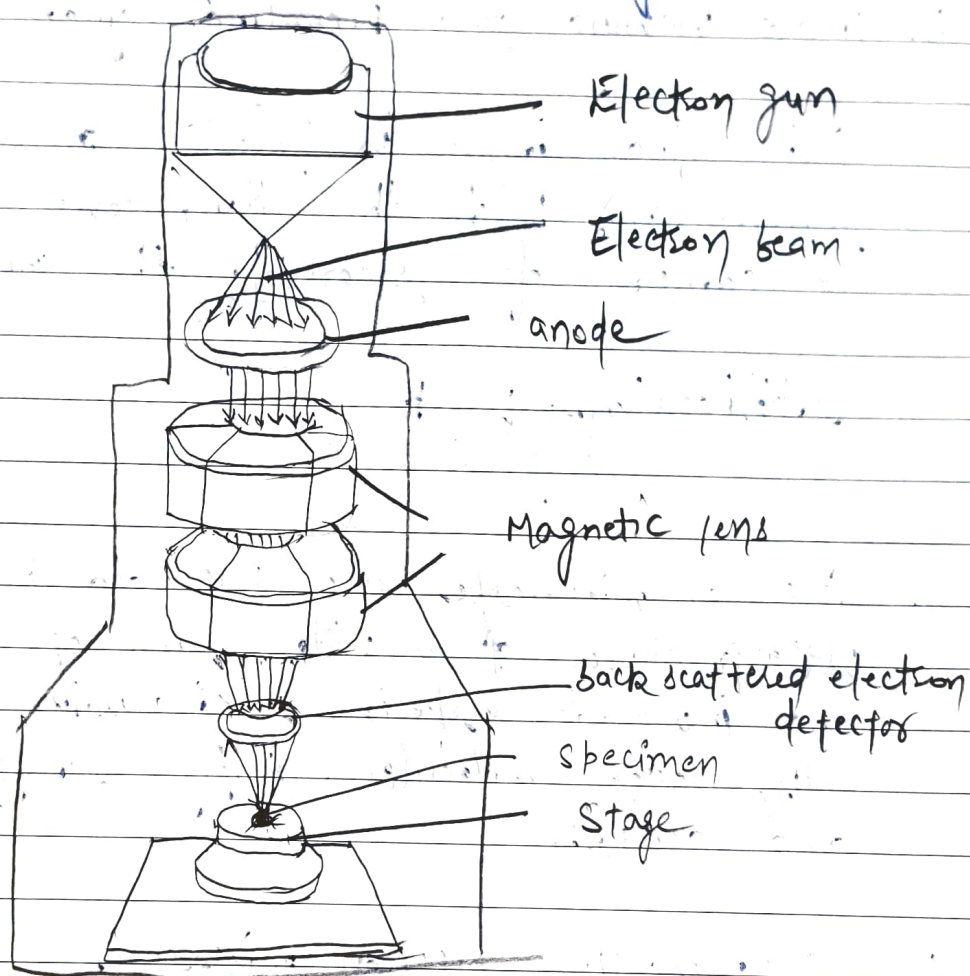 Electron gun
Electron beam.
anode
Magnetic lens
back scattered electron
detector
specimen
Stage.